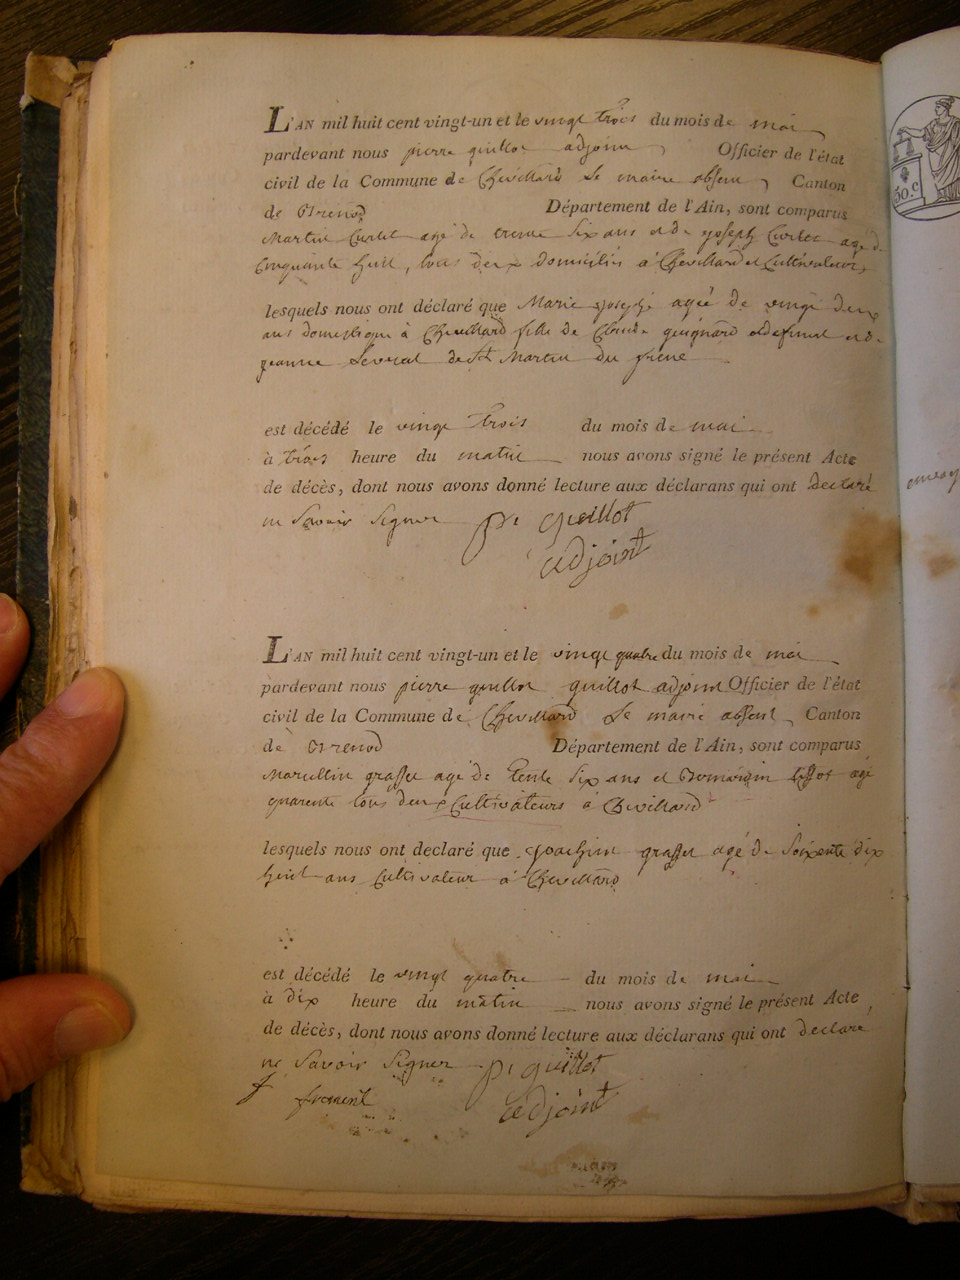 L'AN mil huit cent vingt-un et le vingt trois du mois de mai
pardevant nous pierre guillot adjoint Officier de l'état
civil de la Commune de Chevillard le maire absent Canton
de Brenod Département de l'Ain, sont comparus
Martin Curlet agé de trente six ans et de joseph Curlet agé d
Cinquante huit, tous deux domicilin à Chevillard et Cultivateur
lesquels nous ont déclaré que Marie josephe agée de vingt deux
ans domestique à Chevillard fille de Claude guignard et
jeanne de St Martin du frene
est décédé le vingt trois du mois de mai
à trois heure du matin nous avons signé le présent Acte
de décès, dont nous avons donné lecture aux déclarans qui ont declaré
ne Savoir Signer pr guillot
adjoint
L'AN mil huit cent vingt-un et le vingt quatre du mois de mai
pardevant nous pierre guillot guillot adjoint Officier de l'état
civil de la Commune de Chevillard le maire absent Canton
de Brenod Département de l'Ain, sont comparus
Marcellin grasset agé de trente Six ans et agé
quarente tous deux Cultivateurs à Chevillard
lesquels nous ont declaré que joachim grasset agé de Soixente dix
huit ans Cultivateur à Chevillard
est décédé le vingt quatre du mois de mai
à dix heure du matin nous avons signé le présent Acte
de décès, dont nous avons donné lecture aux déclarans qui ont declaré
ne Savoir Signer pr guillot
froment adjoint
50.c